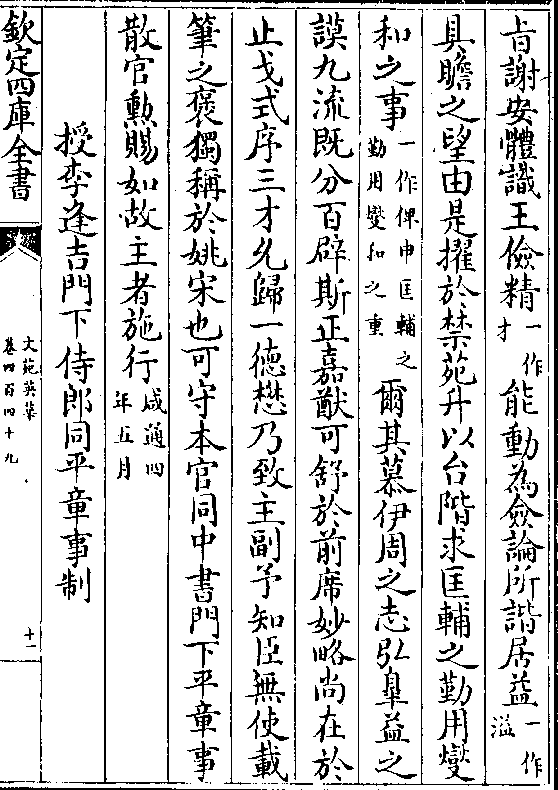 旨謝安體識王儉精一作才能動為僉論所諧居益一作溢
具瞻之望由是擢於禁苑升以台階求匡輔之勤用燮
和之事一作俾申匡輔之勤用燮和之重爾其慕伊周之志弘臯益之
謨九流既分百辟斯正嘉猷可舒於前席妙略尚在於
止戈式序三才允歸一德懋乃致主副予知臣無使載
筆之褒獨稱於姚宋也可守本官同中書門下平章事
散官勲賜如故主者施行咸通四年五月
授李逢吉門下侍郎同平章事制
欽定四庫全書
文苑英華
卷四百四十九
十一